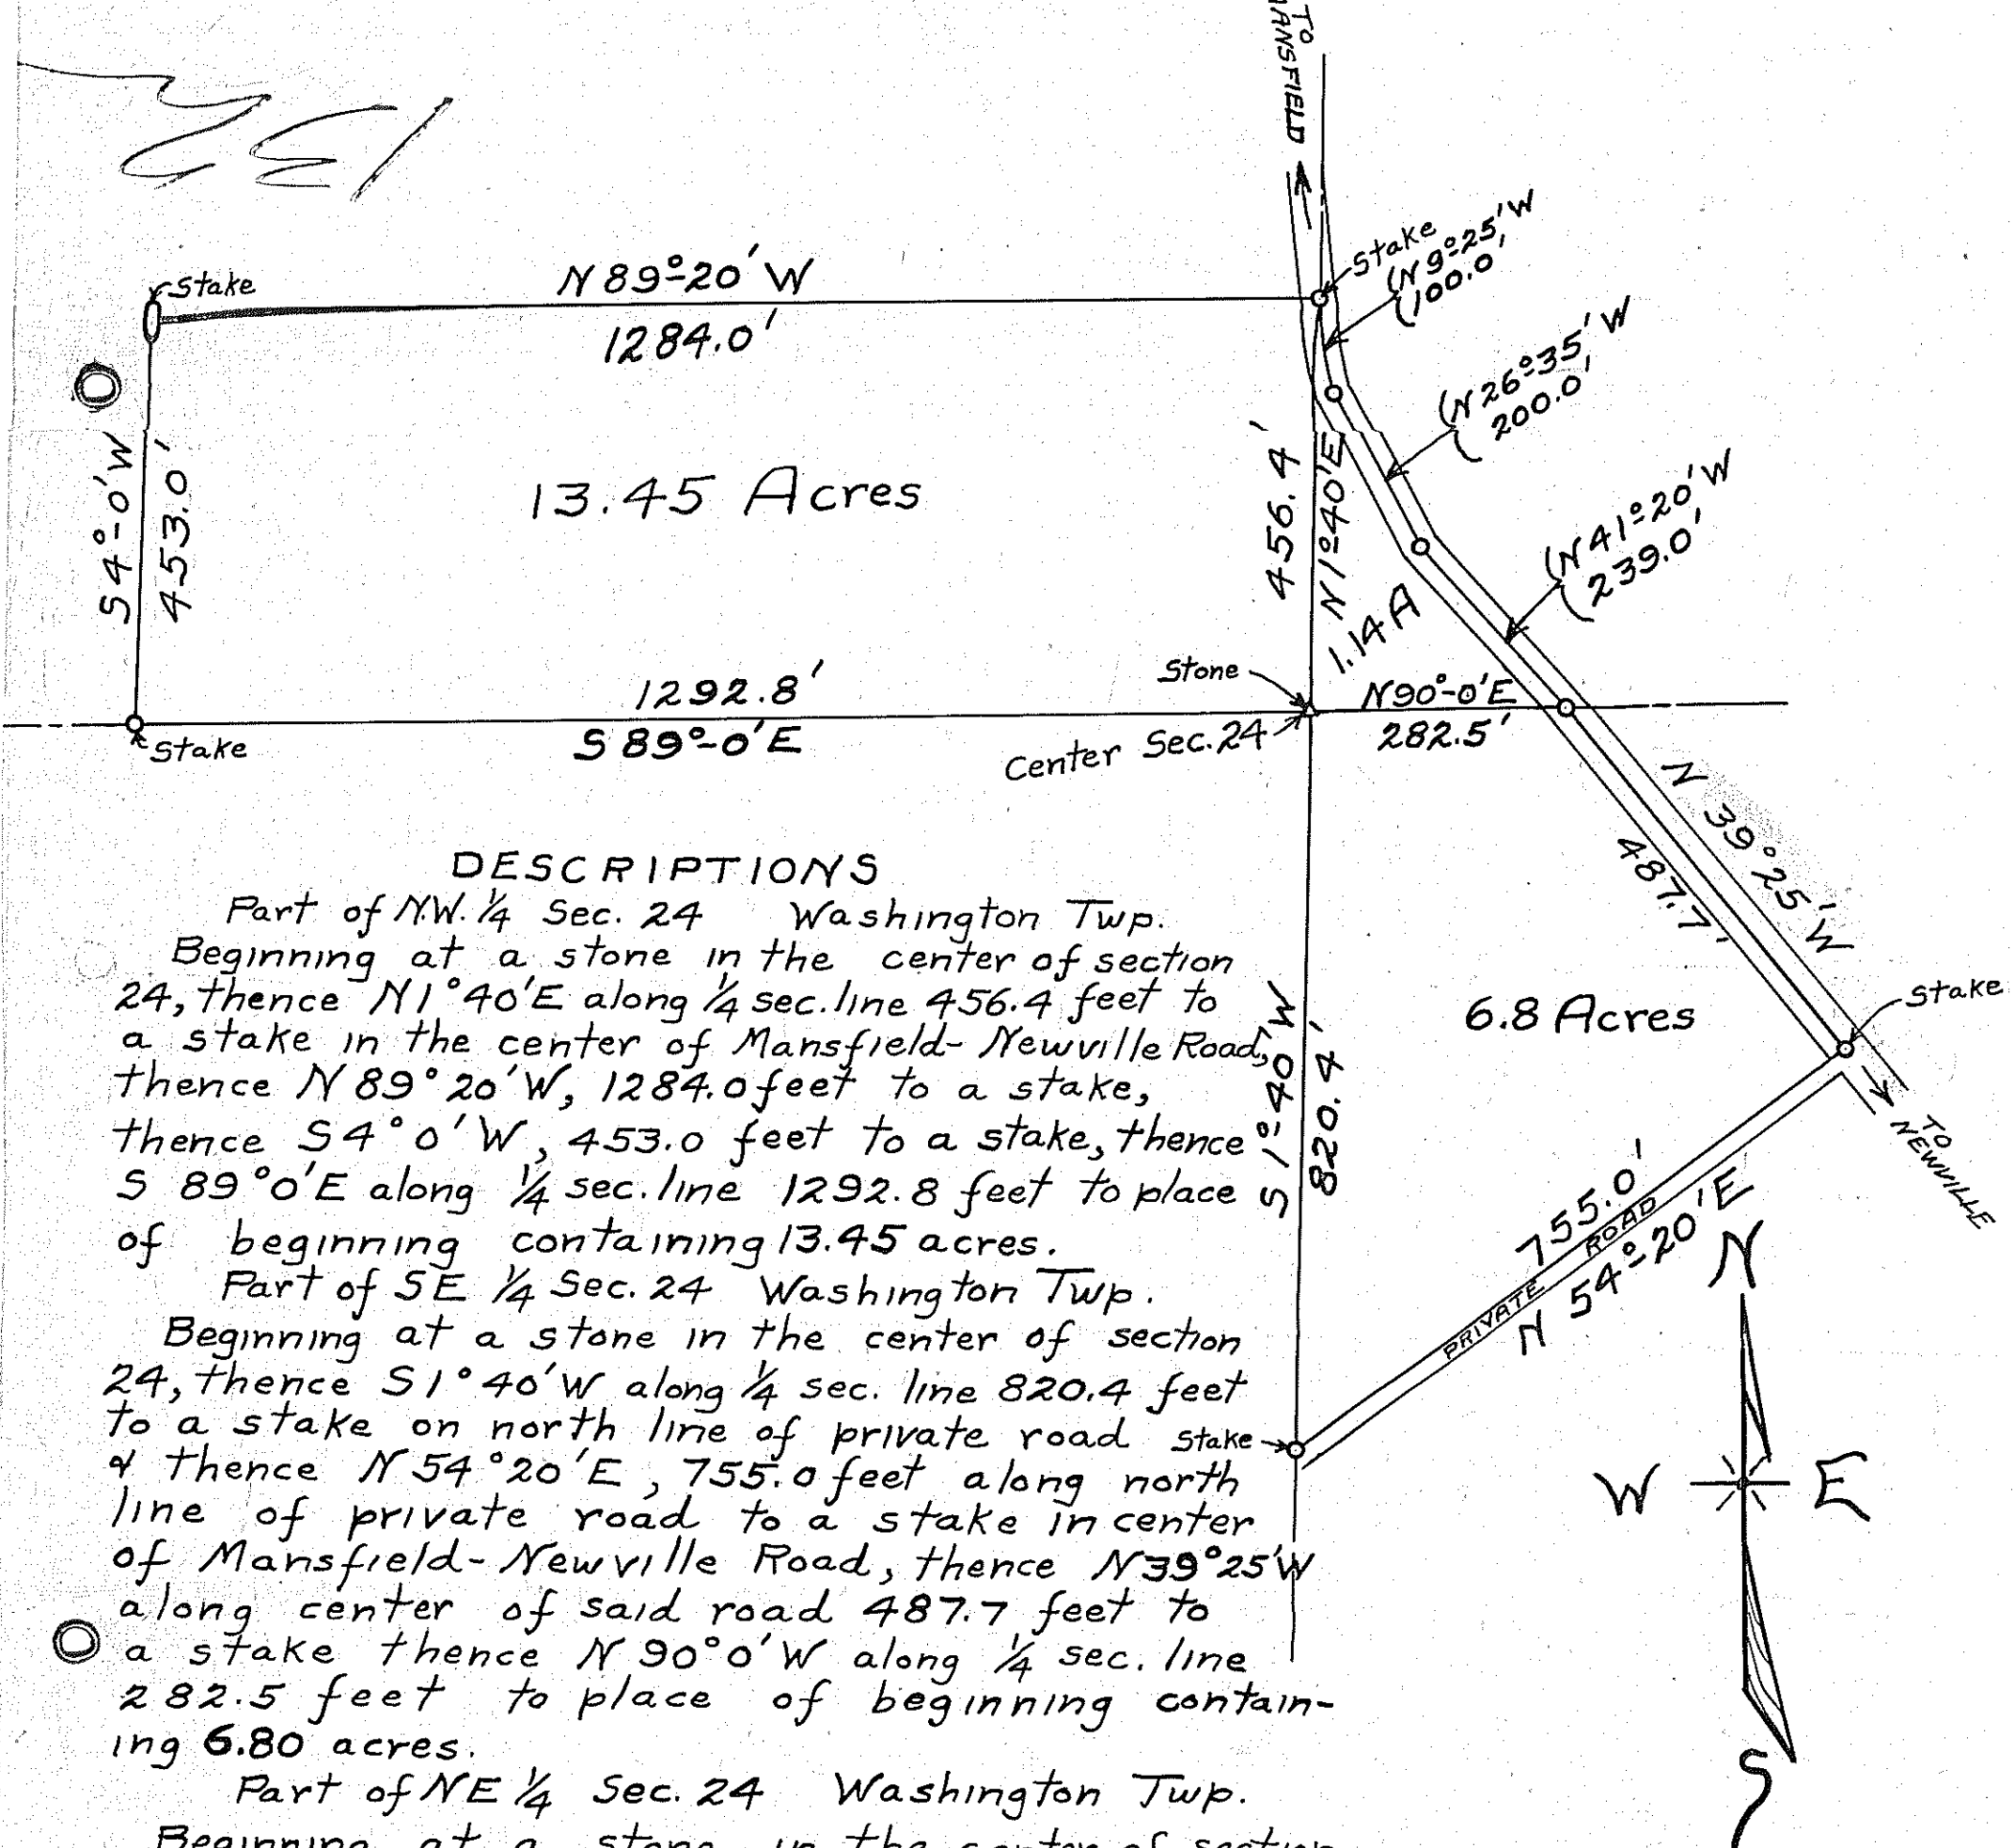 TO
MANSFIELD
132
Stake
N 89°-20' W
1284.0'
Stake
(N 9°-25' W
(100.0'
(N 26°-35' W
( 200.0'
(N 41°-20' W
( 239.0'
S 4°-0' W
453.0'
13.45 Acres
456.4'
N 1°-40' E
1.14 A
1292.8'
S 89°-0' E
Stake
Stone
Center Sec. 24
N 90°-0' E
282.5'
N 39°25' W
487.7'
6.8 Acres
Stake
TO
NEWVILLE
S 1°-40' W
820.4'
755.0'
PRIVATE ROAD
N 54°-20' E
Stake
N
W E
S
DESCRIPTIONS
Part of N.W. 1/4 Sec. 24 Washington Twp.
Beginning at a stone in the center of section
24, thence N 1° 40' E along 1/4 sec. line 456.4 feet to
a stake in the center of Mansfield-Newville Road,
thence N 89° 20' W, 1284.0 feet to a stake,
thence S 4° 0' W, 453.0 feet to a stake, thence
S 89° 0' E along 1/4 sec. line 1292.8 feet to place
of beginning containing 13.45 acres.
Part of SE 1/4 Sec. 24 Washington Twp.
Beginning at a stone in the center of section
24, thence S 1° 40' W along 1/4 sec. line 820.4 feet
to a stake on north line of private road
& thence N 54° 20' E, 755.0 feet along north
line of private road to a stake in center
of Mansfield-Newville Road, thence N 39° 25' W
along center of said road 487.7 feet to
a stake thence N 90° 0' W along 1/4 sec. line
282.5 feet to place of beginning contain-
ing 6.80 acres.
Part of NE 1/4 Sec. 24 Washington Twp.
Beginning at a stone in the center of section